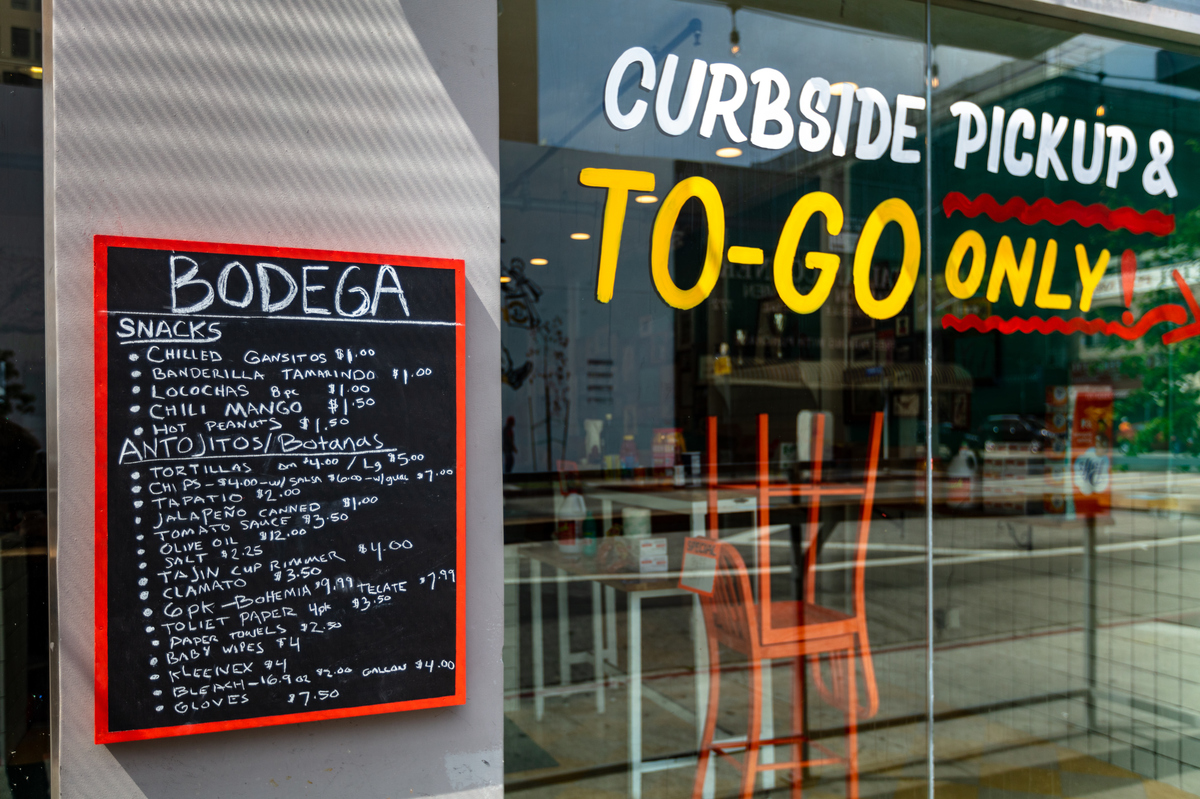 BODEGA
SNACKS
• CHILLED GANSITOS $1.00
• BANDERILLA TAMARINDO $1.00
• LOCOCHAS 8pc $1.00
• CHILI MANGO $1.50
• HOT PEANUTS $1.50
ANTOJITOS/Botanas
• TORTILLAS sm $4.00 / Lg $5.00
• CHIPS-$4.00-w/SALSA $6.00-w/guac $7.00
• TAPATIO $2.00
• JALAPEÑO CANNED $1.00
• TOMATO SAUCE $3.50
• OLIVE OIL $12.00
• SALT $2.25
• TAJIN CUP RIMMER $4.00
• CLAMATO $3.50
• 6pk-BOHEMIA $9.99 TECATE $7.99
• TOLIET PAPER 4pk $3.50
• PAPER TOWELS $2.50
• BABY WIPES $4
• KLEENEX $4
• BLEACH-16.9oz $2.00 GALLON $4.00
• GLOVES $7.50
CURBSIDE PICKUP &
TO-GO ONLY!
SPECIAL